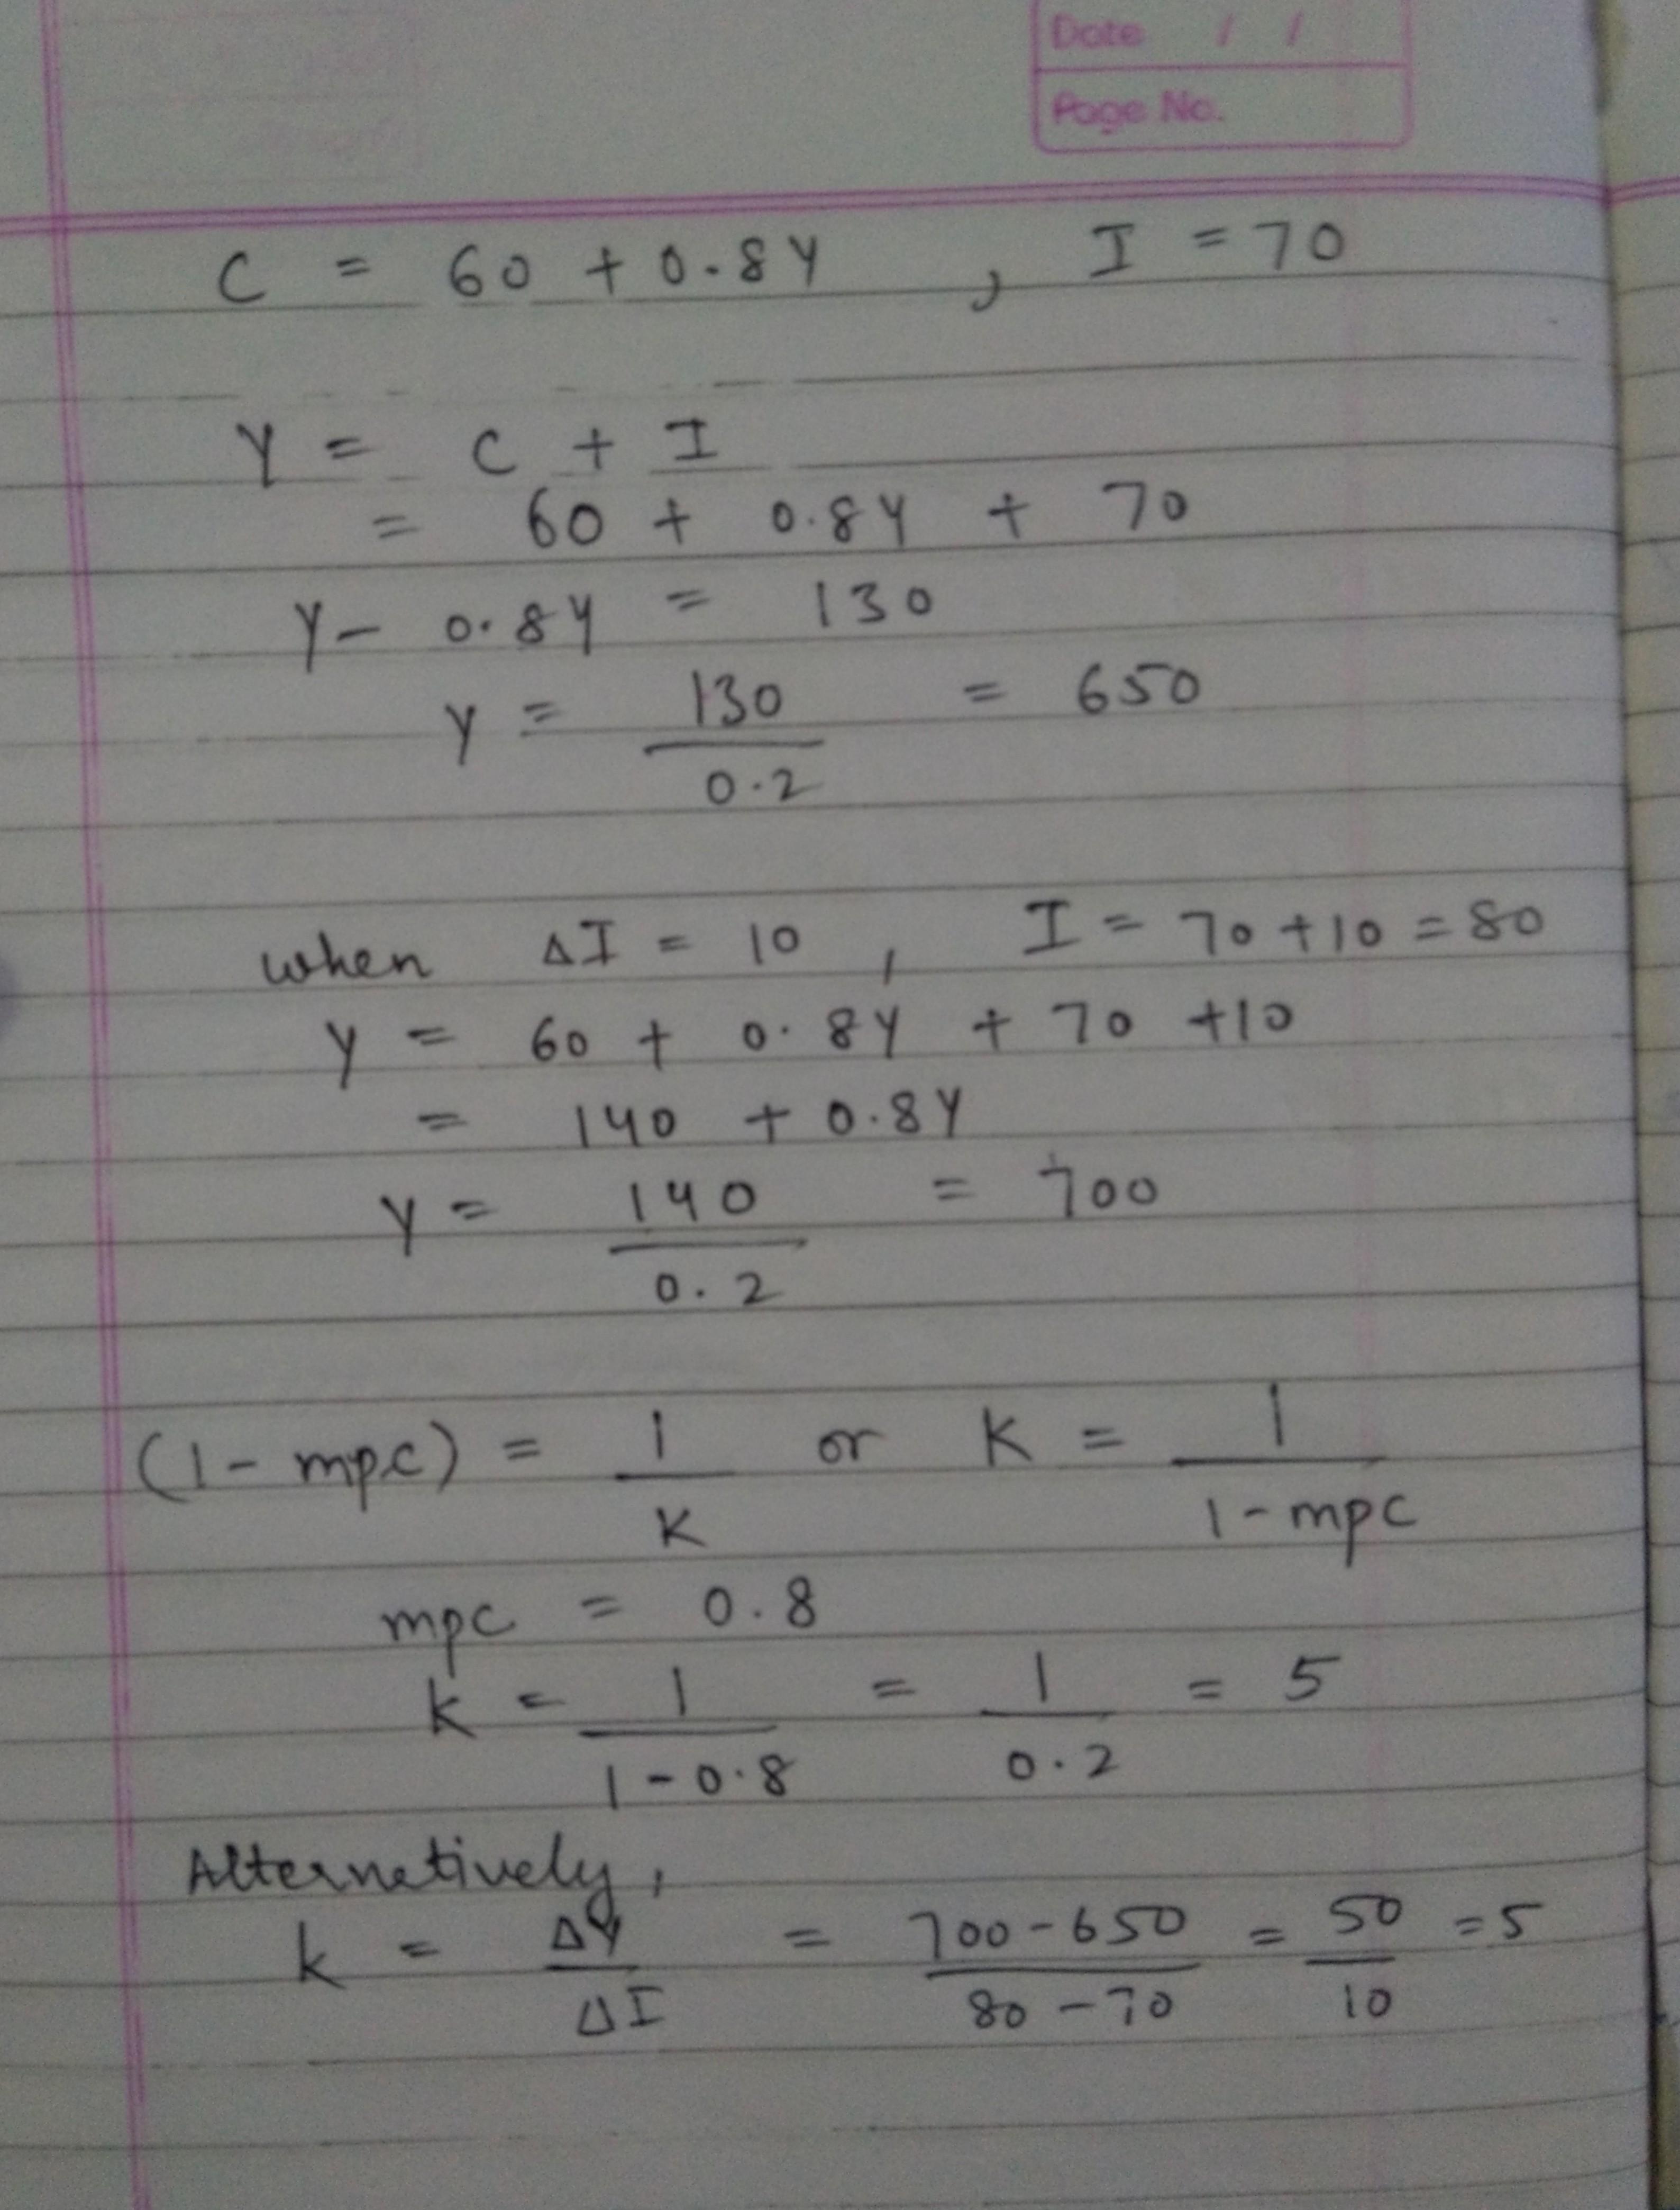 Date / /
Page No.
C = 60 + 0.8Y , I = 70
Y = C + I
= 60 + 0.8Y + 70
Y - 0.8Y = 130
Y = 130/0.2 = 650
when ΔI = 10 , I = 70 + 10 = 80
Y = 60 + 0.8Y + 70 + 10
= 140 + 0.8Y
Y = 140/0.2 = 700
(1 - mpc) = 1/K or K = 1/(1 - mpc)
mpc = 0.8
k = 1/(1 - 0.8) = 1/0.2 = 5
Alternetively,
k = ΔY/ΔI = (700 - 650)/(80 - 70) = 50/10 = 5